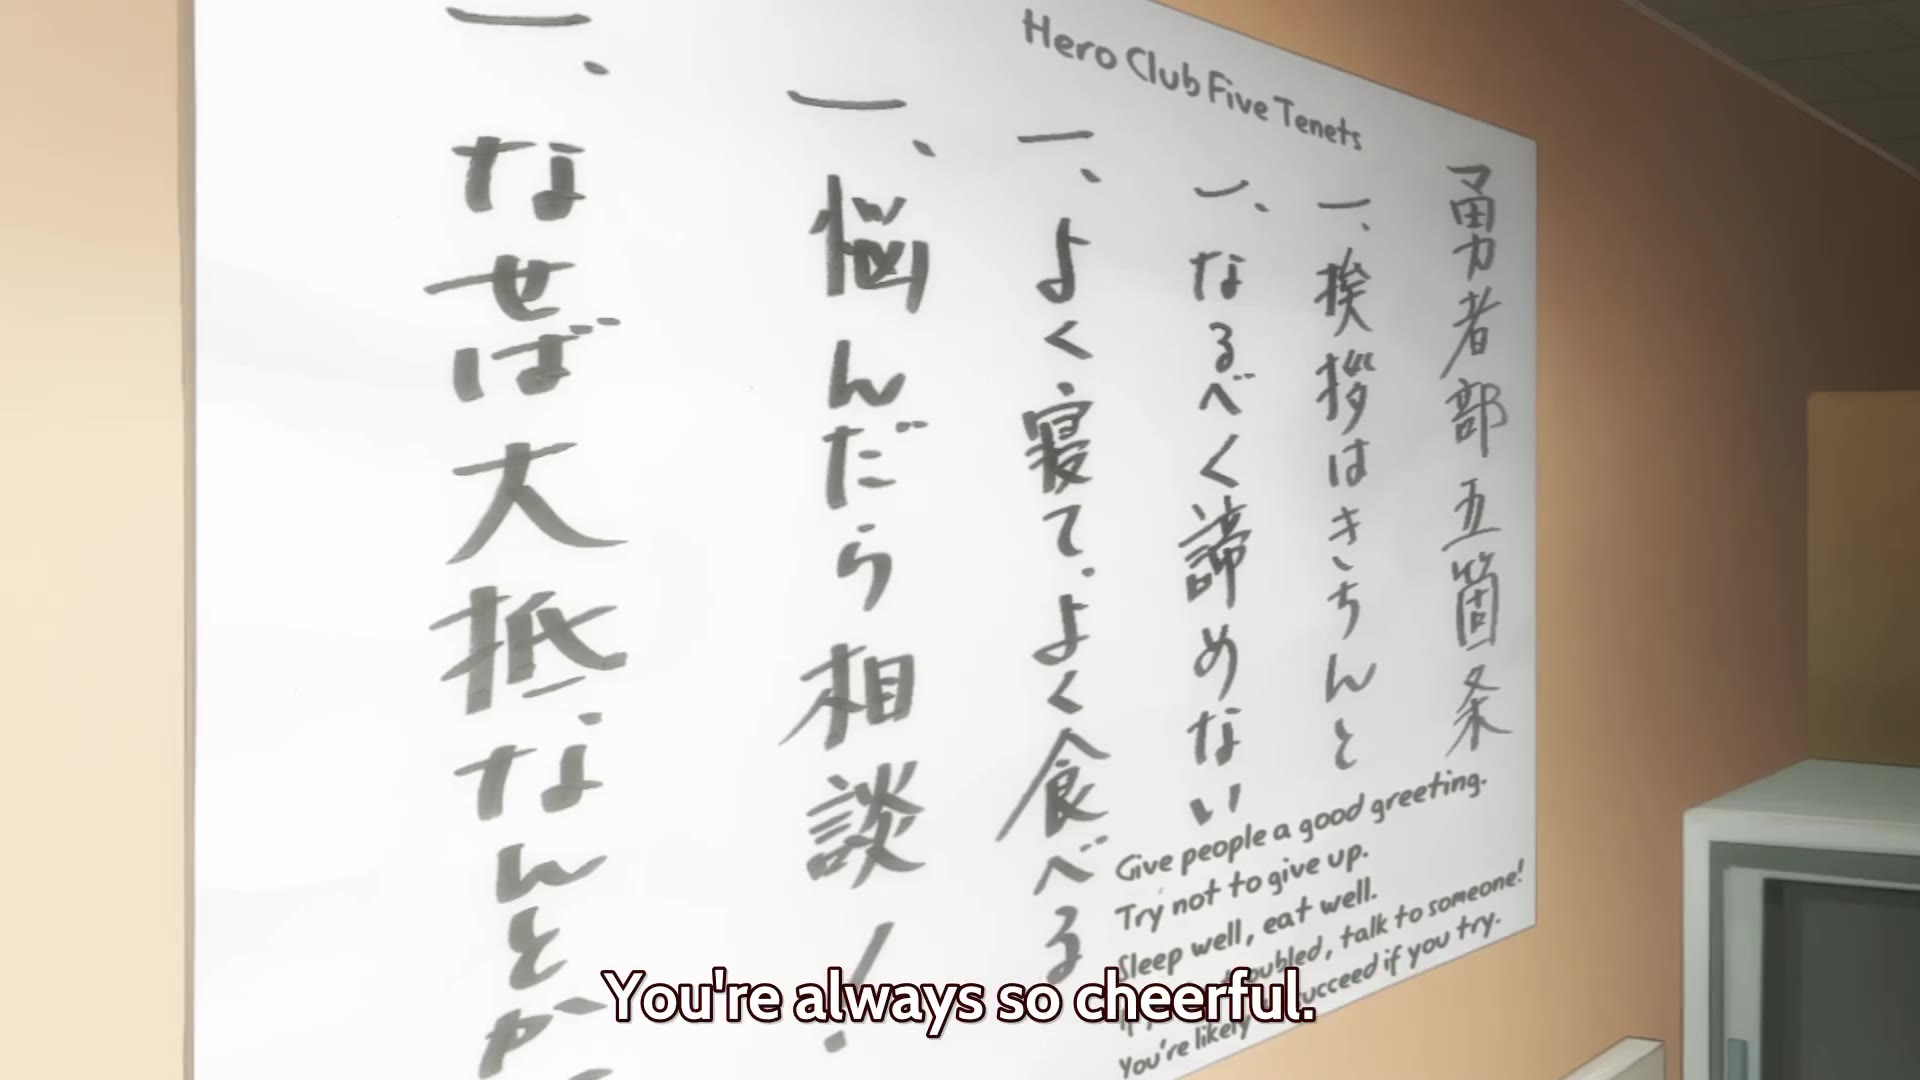 Hero Club Five Tenets
勇者部五箇条
一、挨拶はきちんと
一、なるべく諦めない
一、よく寝て、よく食べる
一、悩んだら相談!
一、なせば大抵なんとか
Give people a good greeting.
Try not to give up.
Sleep well, eat well.
talk to someone!
You're likely succeed if you try.
You're always so cheerful.